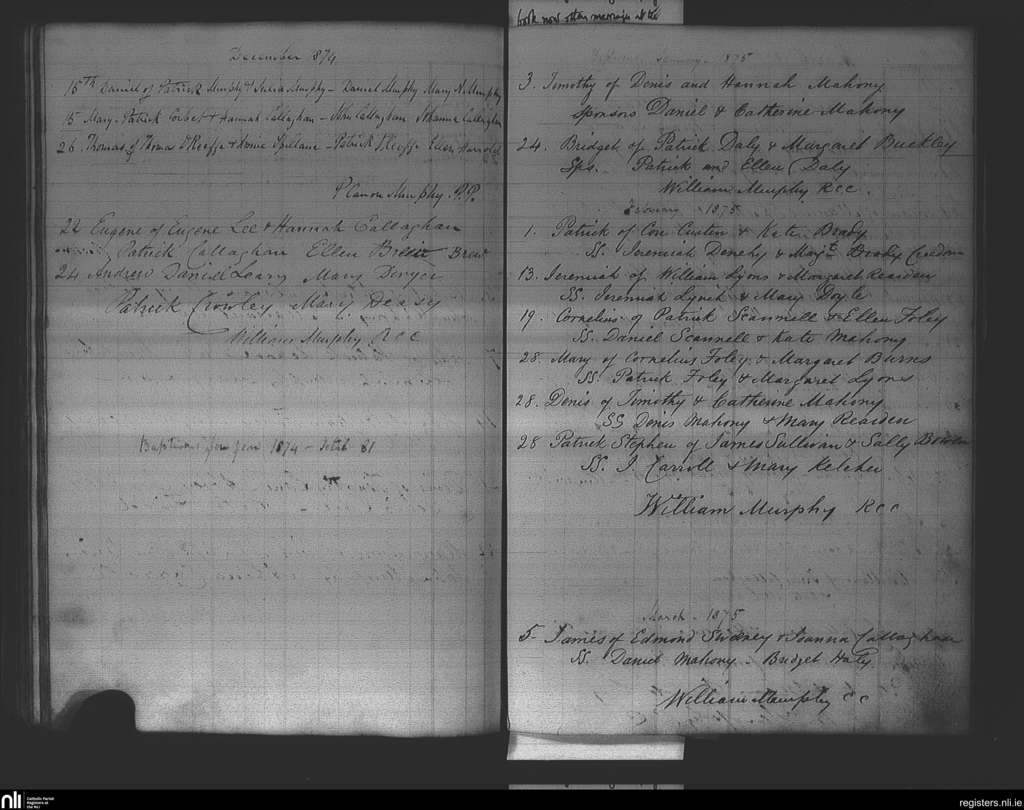 book now other marriages at the
December 1874
15th Daniel of Patrick Murphy & Murphy - Daniel Murphy Mary N. Murphy
15 Mary - Patrick Corbet & Hannah Callaghan - John Callaghan Johanna Callaghan
26 Thomas of Thomas O'Keeffe & Annie Spillane - Patrick O'Keeffe Ellen
P Canon Murphy. P.P.
22 Eugene of Eugene Lee & Hannah Callaghan
Patrick Callaghan Ellen Brew
24 Andrew Daniel Leary Mary Dwyer
Patrick Crowley Mary Deasy
William Murphy R C C
Baptisms for year 1874 - total 81
January 1875
3. Timothy of Denis and Hannah Mahony
sponsors Daniel & Catherine Mahony
24. Bridget of Patrick Daly & Margaret Buckley
Sps. Patrick and Ellen Daly
William Murphy R C C.
February 1875
1. Patrick of Con & Kate Brady
SS. Jeremiah Denehy & Margt Brady
13. Jeremiah of William Lyons & Margaret Rearden
SS. Jeremiah Lynch & Mary Doyle
19. Cornelius of Patrick Scannell & Ellen Foley
SS. Daniel Scannell & Kate Mahony
28. Mary of Cornelius Foley & Margaret Burnes
SS. Patrick Foley & Margaret Lyons
28. Denis of Timothy & Catherine Mahony
SS Denis Mahony & Mary Rearden
28 Patrick Stephen of James Sullivan & Sally Bowden
SS. J. Carroll & Mary Keleher
William Murphy R C C
March 1875
5 James of Edmond Sweeney & Joanna Callaghan
SS. Daniel Mahony. Bridget
William Murphy C C
nli Catholic Parish Registers at the NLI
registers.nli.ie